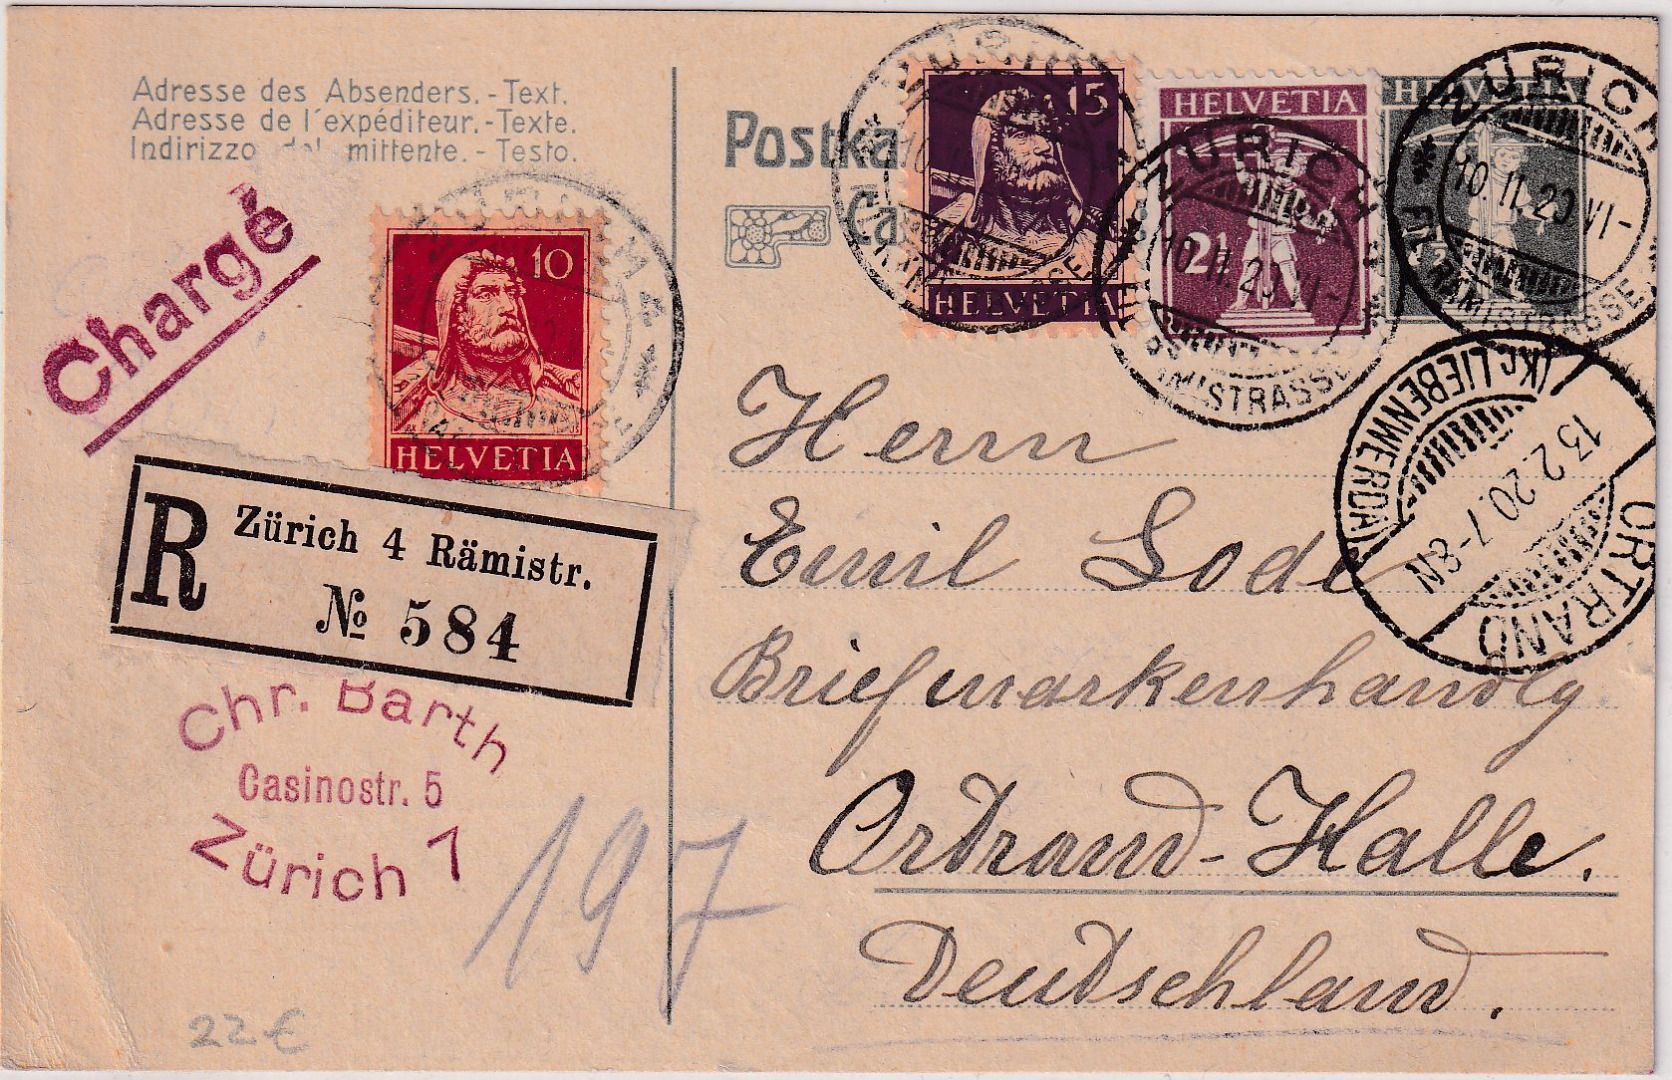 Adresse des Absenders. - Text.
Adresse de l'expéditeur. - Texte.
Indirizzo del mittente. - Testo.
Chargé
10
HELVETIA
R
Zürich 4 Rämistr.
№ 584
Chr. Barth
Casinostr. 5
Zürich 7
197
22 €
Postka
Ca
15
HELVETIA
HELVETIA
2½
HELVETIA
ZÜRICH
10.II.20.VI-
RÄMISTRASSE
ZÜRICH
10.II.20.VI-
FIL. RÄMISTRASSE
ORTRAND
13.2.20.7-8N
(KR. LIEBENWERDA)
Herrn
Emil Lode
Briefmarkenhandlg.
Ortrand-Halle.
Deutschland.